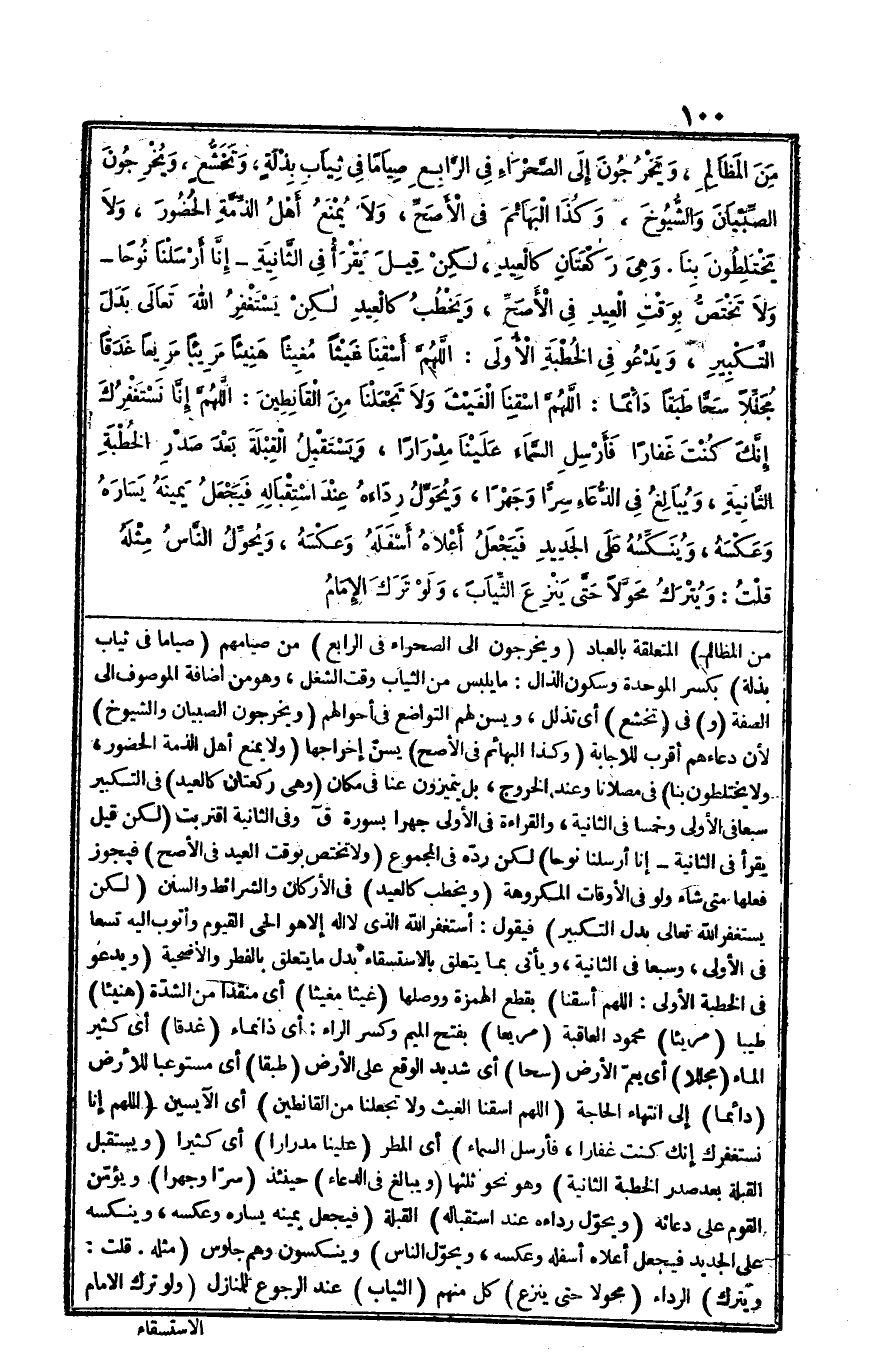 ١٠٠
مِنَ الْمَظَالِمِ ، وَيَخْرُجُونَ إِلَى الصَّحْرَاءِ فِى الرَّابِعِ صِيَامًا فِى ثِيَابِ بِذْلَةٍ، وَتَخَشُّعٍ ، وَيُخْرِجُونَ
الصِّبْيَانَ وَالشُّيُوخَ ، وَكَذَا الْبَهَائِمَ فِى الْأَصَحِّ ، وَلَا يُمْنَعُ أَهْلُ الذِّمَّةِ الْحُضُورَ ، وَلَا
يَخْتَلِطُونَ بِنَا . وَهِىَ رَكْعَتَانِ كَالْعِيدِ ، لٰكِنْ قِيلَ يَقْرَأُ فِى الثَّانِيَةِ ـ إِنَّا أَرْسَلْنَا نُوحًا ـ
وَلَا تَخْتَصُّ بِوَقْتِ الْعِيدِ فِى الْأَصَحِّ ، وَيَخْطُبُ كَالْعِيدِ لٰكِنْ يَسْتَغْفِرُ اللهَ تَعَالَى بَدَلَ
التَّكْبِيرِ ، وَيَدْعُو فِى الْخُطْبَةِ الْأُولَى : اللّٰهُمَّ أَسْقِنَا غَيْثًا مُغِيثًا هَنِيئًا مَرِيئًا مَرِيعًا غَدَقًا
مُجَلِّلًا سَحًّا طَبَقًا دَائِمًا : اللّٰهُمَّ اسْقِنَا الْغَيْثَ وَلَا تَجْعَلْنَا مِنَ الْقَانِطِينَ : اللّٰهُمَّ إِنَّا نَسْتَغْفِرُكَ
إِنَّكَ كُنْتَ غَفَّارًا فَأَرْسِلِ السَّمَاءَ عَلَيْنَا مِدْرَارًا ، وَيَسْتَقْبِلُ الْقِبْلَةَ بَعْدَ صَدْرِ الْخُطْبَةِ
الثَّانِيَةِ ، وَيُبَالِغُ فِى الدُّعَاءِ سِرًّا وَجَهْرًا ، وَيُحَوِّلُ رِدَاءهُ عِنْدَ اسْتِقْبَالِهِ فَيَجْعَلُ يَمِينَهُ يَسَارَهُ
وَعَكْسَهُ ، وَيُنَكِّسُهُ عَلَى الْجَدِيدِ فَيَجْعَلُ أَعْلَاهُ أَسْفَلَهُ وَعَكْسَهُ ، وَيُحَوِّلُ النَّاسُ مِثْلَهُ
قُلْتُ : وَيُتْرَكُ مُحَوَّلًا حَتَّى يَنْزِعَ الثِّيَابَ ، وَلَوْ تَرَكَ الْإِمَامُ
من المظالم) المتعلقة بالعباد (ويخرجون الى الصحراء فى الرابع) من صيامهم (صياما فى ثياب
بذلة) بكسر الموحدة وسكون الذال : مايلبس من الثياب وقت الشغل ، وهو من اضافة الموصوف الى
الصفة (و) فى (تخشع) أى تذلل ، ويسن لهم التواضع فى أحوالهم (ويخرجون الصبيان والشيوخ)
لأن دعاءهم أقرب للاجابة (وكذا البهائم فى الأصح) يسنّ إخراجها (ولا يمنع أهل الذمة الحضور ،
ولا يختلطون بنا) فى مصلانا وعند الخروج ، بل يتميزون عنا فى مكان (وهى ركعتان كالعيد) فى التكبير
سبعا فى الأولى وخمسا فى الثانية ، والقراءة فى الأولى جهرا بسورة قٓ وفى الثانية اقتربت (لكن قيل
يقرأ فى الثانية ـ إنا أرسلنا نوحا) لكن ردّه فى المجموع (ولا تختص بوقت العيد فى الأصح) فيجوز
فعلها متى شاء ولو فى الأوقات المكروهة (ويخطب كالعيد) فى الأركان والشرائط والسنن (لكن
يستغفر الله تعالى بدل التكبير) فيقول : أستغفر الله الذى لا اله إلا هو الحى القيوم وأتوب اليه تسعا
فى الأولى ، وسبعا فى الثانية ، ويأتى بما يتعلق بالاستسقاء بدل مايتعلق بالفطر والأضحية (ويدعو
فى الخطبة الأولى : اللهم أسقنا) بقطع الهمزة ووصلها (غيثا مغيثا) أى منقذا من الشدّة (هنيئا)
طيبا (مريئا) محمود العاقبة (مريعا) بفتح الميم وكسر الراء : أى ذا نماء (غدقا) أى كثير
الماء (مجللا) أى يعمّ الأرض (سحا) أى شديد الوقع على الأرض (طبقا) أى مستوعبا للأرض
(دائما) إلى انتهاء الحاجة (اللهم اسقنا الغيث ولا تجعلنا من القانطين) أى الآيسين (اللهم إنا
نستغفرك إنك كنت غفارا ، فأرسل السماء) أى المطر (علينا مدرارا) أى كثيرا (ويستقبل
القبلة بعد صدر الخطبة الثانية) وهو نحو ثلثها (ويبالغ فى الدعاء) حينئذ (سرّا وجهرا) ويؤمّن
القوم على دعائه (ويحوّل رداءه عند استقباله) القبلة (فيجعل يمينه يساره وعكسه ، وينكسه
على الجديد فيجعل أعلاه أسفله وعكسه ، ويحوّل الناس) وينكسون وهم جلوس (مثله . قلت :
ويترك) الرداء (محولا حتى ينزع) كل منهم (الثياب) عند الرجوع للمنازل (ولو ترك الامام
الاستسقاء